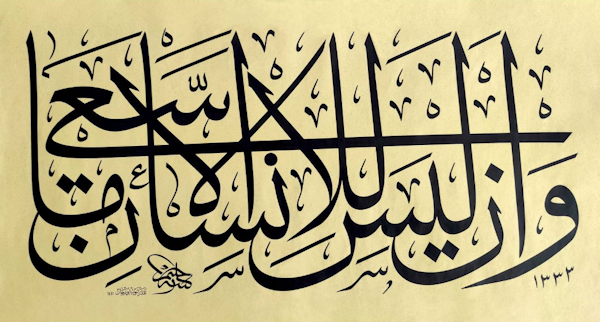 وان ليس للانسان الا ما سعى
١٣٣٣